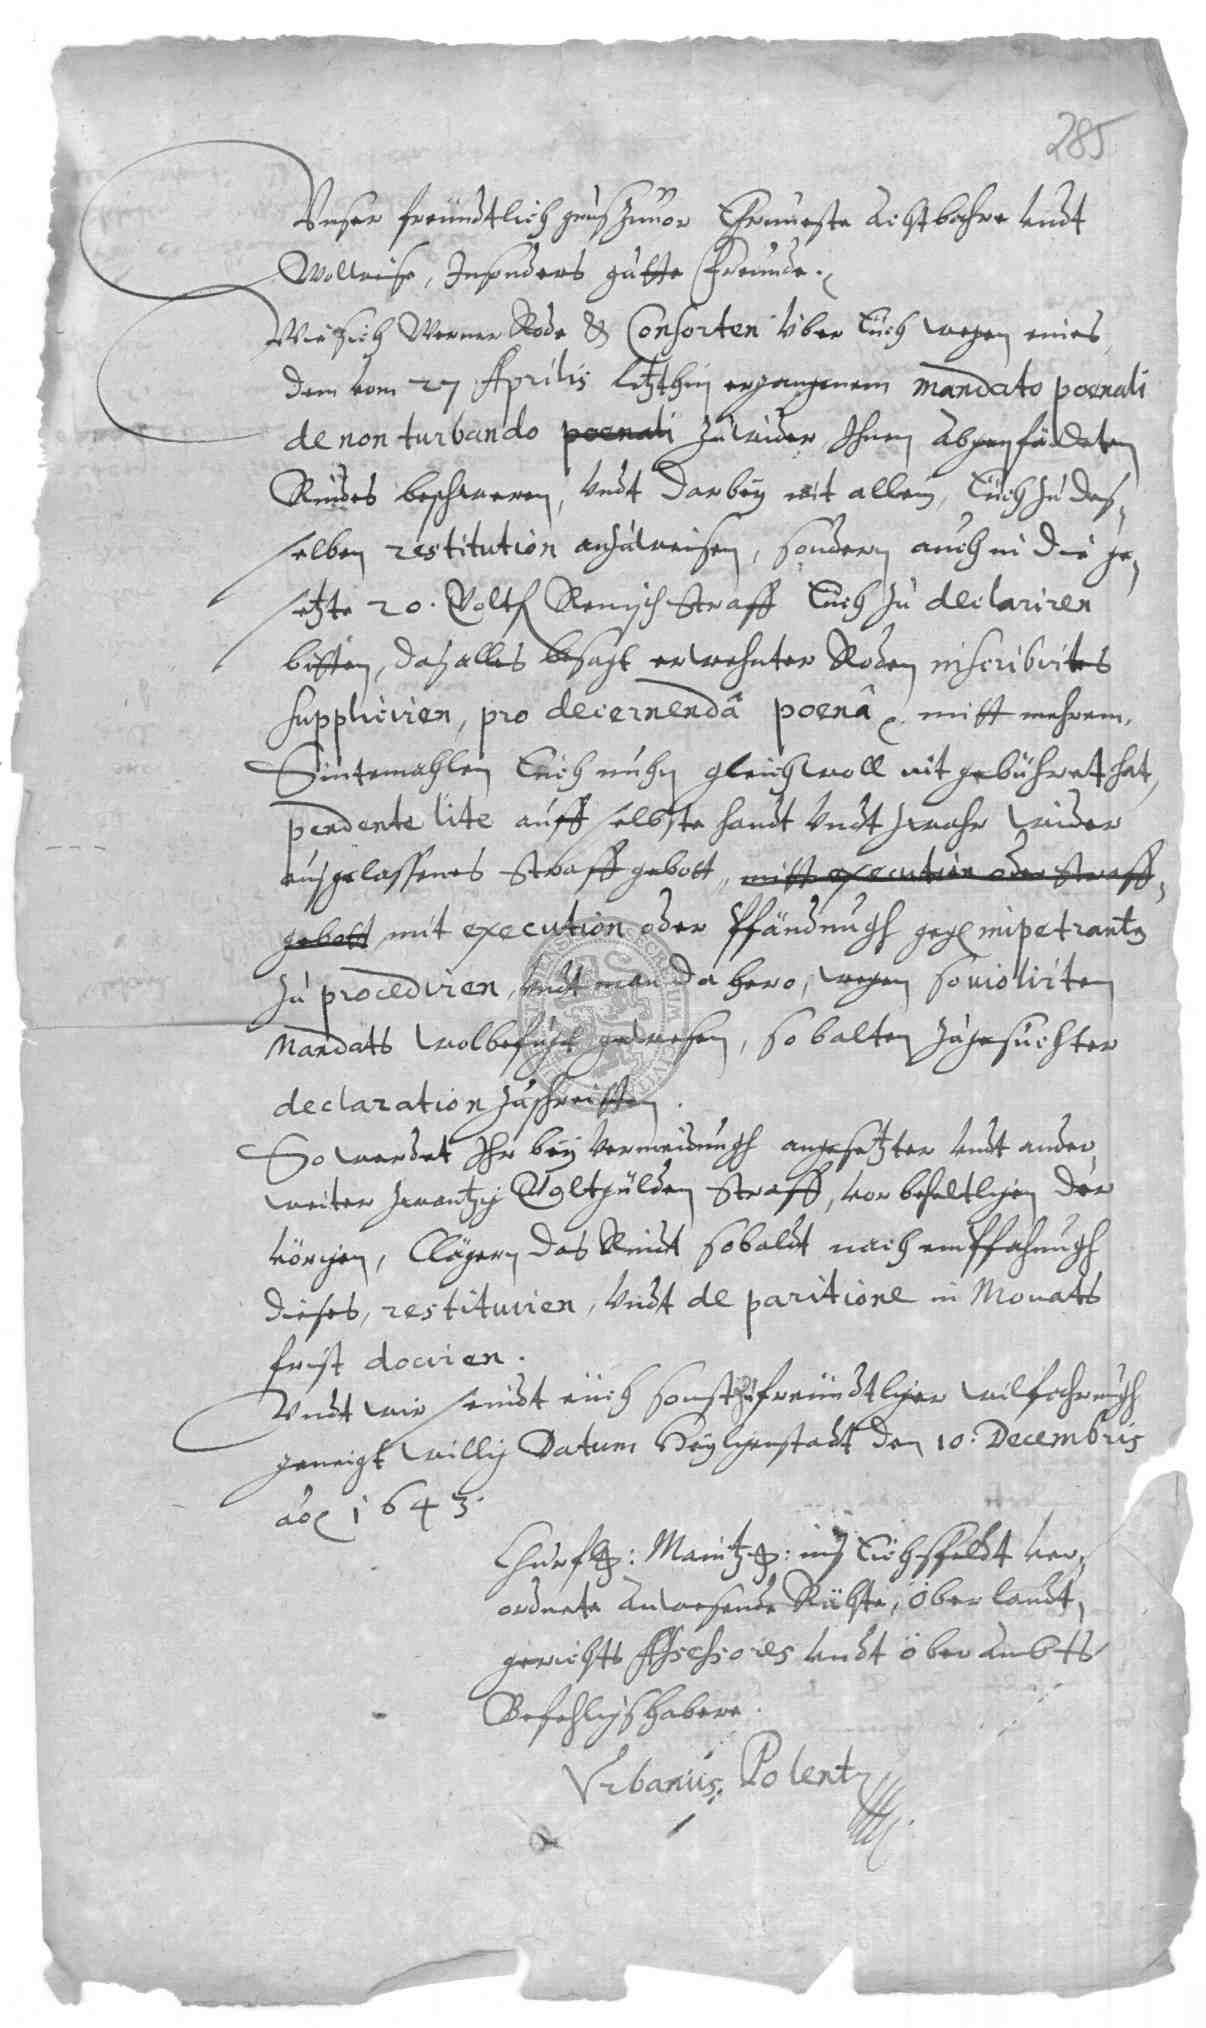 285
Unser freundtlich grus zuuor Ehrnueste Achtbahre undt
Wollweise, Insonders gutte Freunde.
Wie sich Werner Rode & Consorten über Euch wegen eines
dem vom 27 Aprilis letzthin ergangenem mandato poenali
de non turbando poenali zuwider Ihnen abgepfändeten
Rindes beschweren, undt darbey nit allein, Euch zu des,
selben restitution anzuweisen, sondern auch in die ge,
setzte 20. Goltfl Reinisch Straff Euch zu declariren
bitten, das alles besagt erwehnter Roden inscribirtes
suppliciren, pro decernendâ poenâ mitt mehrem.
Sintemahlen Euch nuhn gleichwoll nit gebühret hat,
pendente lite auff selbste handt undt zwahr wider
ausgelassenes Straffgebott, mitt execution oder Straff,
gebott mit execution oder Pfändungh gegen impetranten
zu procediren, undt man dahero, wegen so violirten
Mandats wolbefugt gewesen, so balten zu gesuchter
declaration zuschreitten.
So werdet Ihr bey Vermeidungh angesetzter undt ander,
weiter zwantzig Goltgülden Straff, vorbehaltlichen der
vorigen, Clägern das Rindt sobaldt nach empfahungh
dieses, restituiren, undt de paritione in Monats
frist dociren.
Undt wir seindt euch sonst zu freundtlicher wilfahrungh
geneigt willig Datum Heyligenstadt den 10. Decembris
ao 1643.
Churf: Maintz: ins Eichsfeldt ver,
ordnete Anwesende Räthe, Oberlandt,
gerichts Assessores undt Oberambts
Befehlichshabere.
Urbanus Polentz